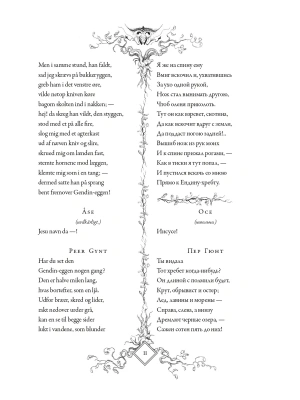 Men i samme stund, han faldt,
sad jeg skrævs på bukkeryggen,
greb ham i det venstre øre,
vilde netop kniven køre
bagom skolten ind i nakken; —
hej! da skreg han vildt, den styggen,
stod med et på alle fire,
slog mig med et agterkast
ud af næven knir og slire,
skrued mig om lænden fast,
stemte hornene mod læggen,
klemte mig som i en tang; —
dermed satte han på sprang
bent fremover Gendin-eggen!
Åse
(uvilkårligt.)
Jesu navn da —!
Peer Gynt
Har du set den
Gendin-eggen nogen gang?
Den er halve milen lang,
hvas bortefter, som en ljå.
Udfor bræer, skred og lider,
nedover urder grå,
kan en se til begge sider
lukt i vandene, som blunder
Я же на спину ему
Вмиг вскочил и, ухватившись
За ухо одной рукой,
Нож стал вынимать другою,
Чтоб оленя приколоть.
Тут он как взревет, скотина,
Да как вскочит вдруг с земли,
Да наддаст погою задней!..
Вышиб нож из рук моих
И к спине прижал рогами, —
Как в тиски я тут попал, —
И пустился вскачь со мною
Прямо к Гендину-хребту.
Осе
(невольно)
Иисусе!
Пер Гюнт
Ты видала
Тот хребет когда-нибудь?
Он длиной с полмили будет,
Крут, обрывист и остер;
Лед, лавины и морены —
Справа, слева, а внизу
Дремлют черные озера, —
Сажен сотен пять до них!
11